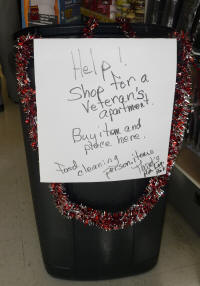 Help!
Shop for a
Veteran's
apartment.
Buy item and
place here.
Food cleaning person items